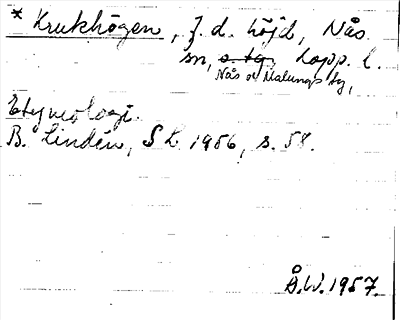 * Krukhögen, f.d. höjd, Nås
sn, s. tg, Kopp. l.
Nås o. Malungs tg,
Etymologi.
B. Lindén, SL 1956, s. 58.
Å.W. 1957.